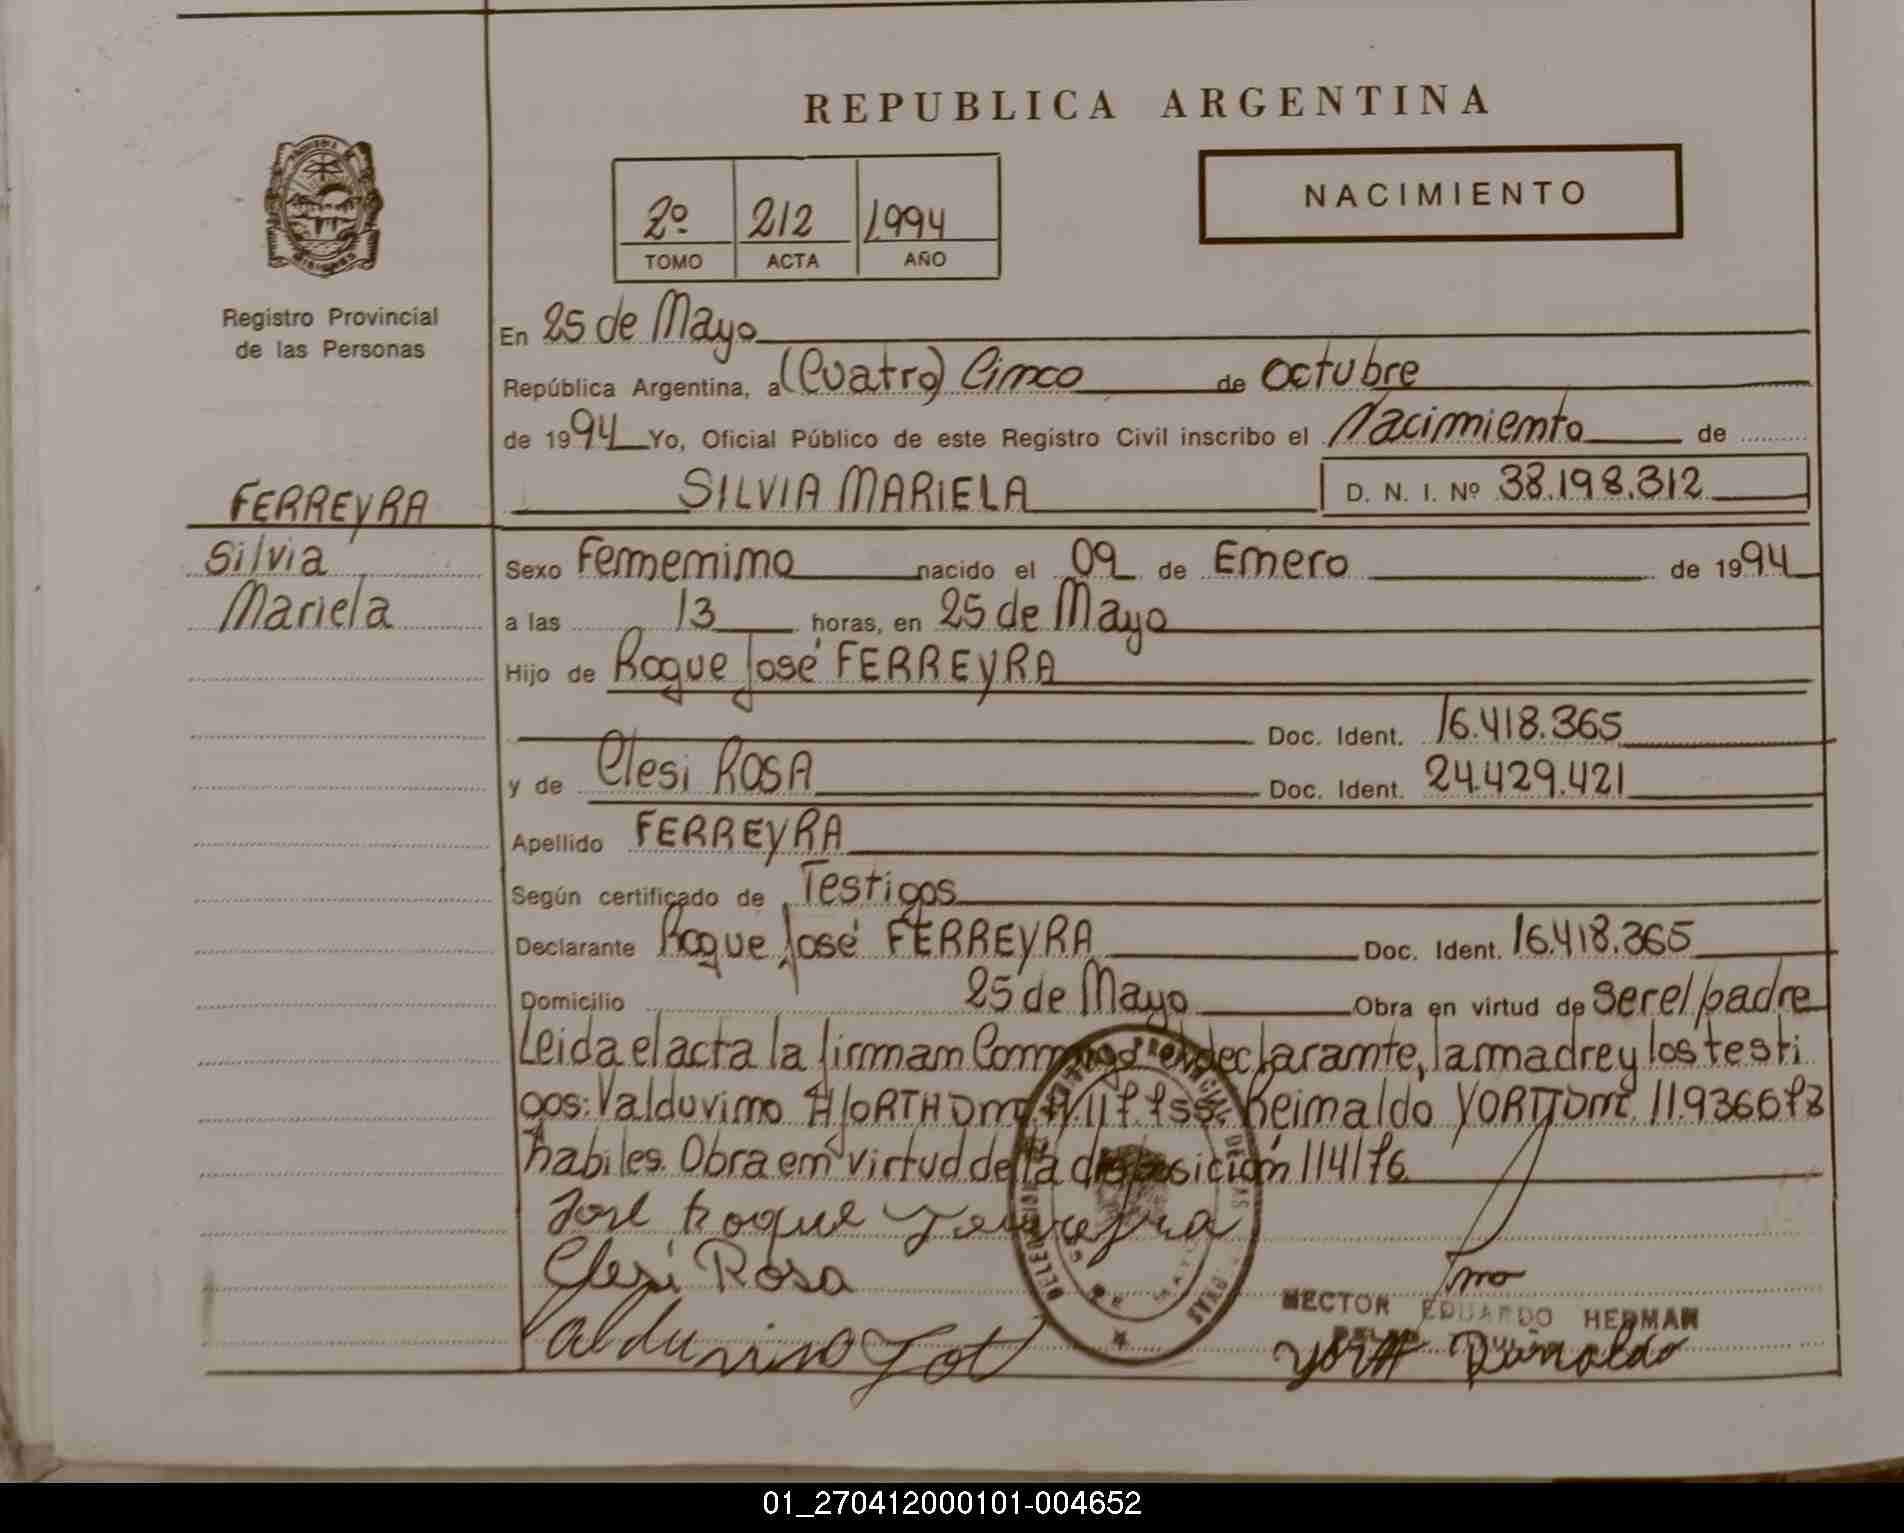 REPUBLICA ARGENTINA
NACIMIENTO
2º 212 1994
TOMO ACTA AÑO
Registro Provincial
de las Personas
En 25 de Mayo
República Argentina, a (Cuatro) Cinco de octubre
de 1994 Yo, Oficial Público de este Registro Civil inscribo el Nacimiento de
SILVIA MARIELA D. N. I. Nº 38.198.312
FERREYRA
Silvia
Mariela
Sexo Femenino nacido el 09 de Enero de 1994
a las 13 horas, en 25 de Mayo
Hijo de Roque José FERREYRA
Doc. Ident. 16.418.365
y de Clesi ROSA Doc. Ident. 24.429.421
Apellido FERREYRA
Según certificado de Testigos
Declarante Roque José FERREYRA Doc. Ident. 16.418.365
Domicilio 25 de Mayo Obra en virtud de ser el padre
Leida el acta la firman Conmigo el declarante, la madre y los testi
gos: Valduvino Reinaldo
habiles. Obra en virtud de la disposición 114/76
José Roque Ferreyra
Clesi Rosa
Valduvino
HECTOR EDUARDO HERMAN
Reinaldo
01_270412000101-004652